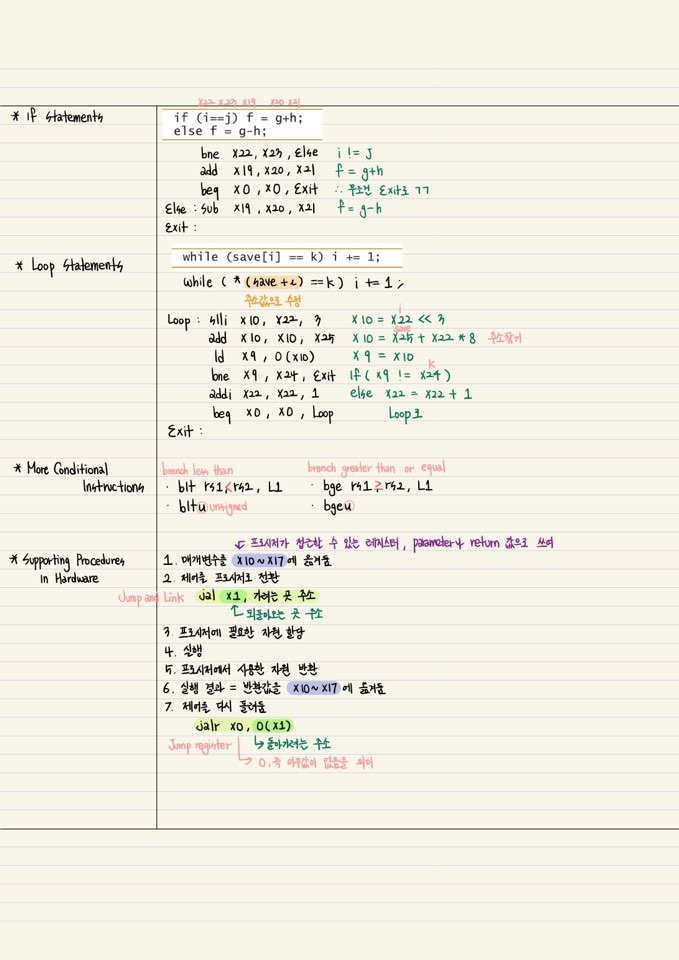 * If Statements
x22 x23 x19 x20 x21
if (i==j) f = g+h;
else f = g-h;
bne x22, x23, Else i != j
add x19, x20, x21 f = g+h
beq x0, x0, Exit ∴ 무조건 Exit로 ㄱㄱ
Else : sub x19, x20, x21 f = g-h
Exit :
* Loop Statements
while (save[i] == k) i += 1;
while ( * (save + i) == k) i += 1;
주소값으로 수정
i
Loop : slli x10, x22, 3 x10 = x22 << 3
save
add x10, x10, x25 x10 = x25 + x22 * 8 주소찾기
ld x9, 0(x10) x9 = x10
k
bne x9, x24, Exit if( x9 != x24)
addi x22, x22, 1 else x22 = x22 + 1
beq x0, x0, Loop Loop로
Exit :
* More Conditional
Instructions
branch less than branch greater than or equal
· blt rs1<rs2, L1 · bge rs1≥rs2, L1
· bltu unsigned · bgeu
* Supporting Procedures
in Hardware
↙ 프로시저가 접근할 수 있는 레지스터, parameter나 return 값으로 쓰여
1. 매개변수를 x10~x17에 옮겨둠
2. 제어를 프로시저로 전환
Jump and Link jal x1, 가려는 곳 주소
↳ 되돌아오는 곳 주소
3. 프로시저에 필요한 자원 할당
4. 실행
5. 프로시저에서 사용한 자원 반환
6. 실행 결과 = 반환값을 x10~x17에 옮겨둠
7. 제어를 다시 돌려줌
jalr x0, 0(x1)
Jump register ↳ 돌아가려는 주소
↳ 0, 즉 아무값이 없음을 의미